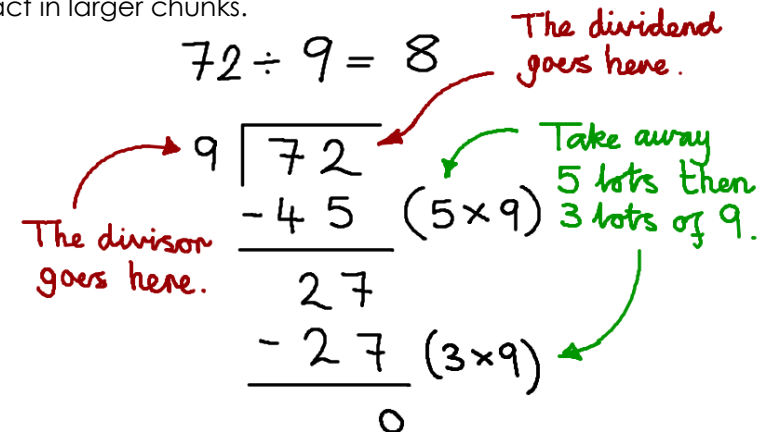 act in larger chunks.
72 ÷ 9 = 8
The dividend
goes here.
9 72
Take away
5 lots then
3 lots of 9.
- 4 5 (5×9)
The divisor
goes here.
27
- 27 (3×9)
0